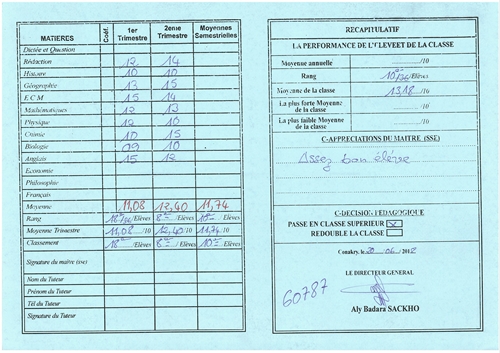 MATIERES Coéf. 1er Trimestre 2eme Trimestre Moyennes Semestrielles
Dictée et Question
Rédaction 12 14
Histoire 10 10
Géographie 13 15
E C M 15 14
Mathématiques 12 13
Physique 12 10
Chimie 10 15
Biologie 09 10
Anglais 15 12
Economie
Philosophie
Français
Moyenne 11,08 12,40 11,74
Rang 18e/36/Elèves 8e/Elèves 10e/Elèves
Moyenne Trimestre 11,08/10 12,40/10 11,74/10
Classement 18e/Elèves 8e/Elèves 10e/Elèves
Signature du maitre (sse)
Nom du Tuteur
Prénom du Tuteur
Tél du Tuteur
Signature du Tuteur
RECAPITULATIF
LA PERFORMANCE DE L'ELEVE ET DE LA CLASSE
Moyenne annuelle /10
Rang 10e/36/Elèves
Moyenne de la classe 13,18/10
La plus forte Moyenne de la classe /10
La plus faible Moyenne de la classe /10
C-APPRECIATIONS DU MAITRE (SSE)
Assez bon élève
C-DECISION PEDAGOGIQUE
PASSE EN CLASSE SUPERIEUR
REDOUBLE LA CLASSE
Conakry, le 20 06 /2012
LE DIRECTEUR GENERAL
60787
Aly Badara SACKHO